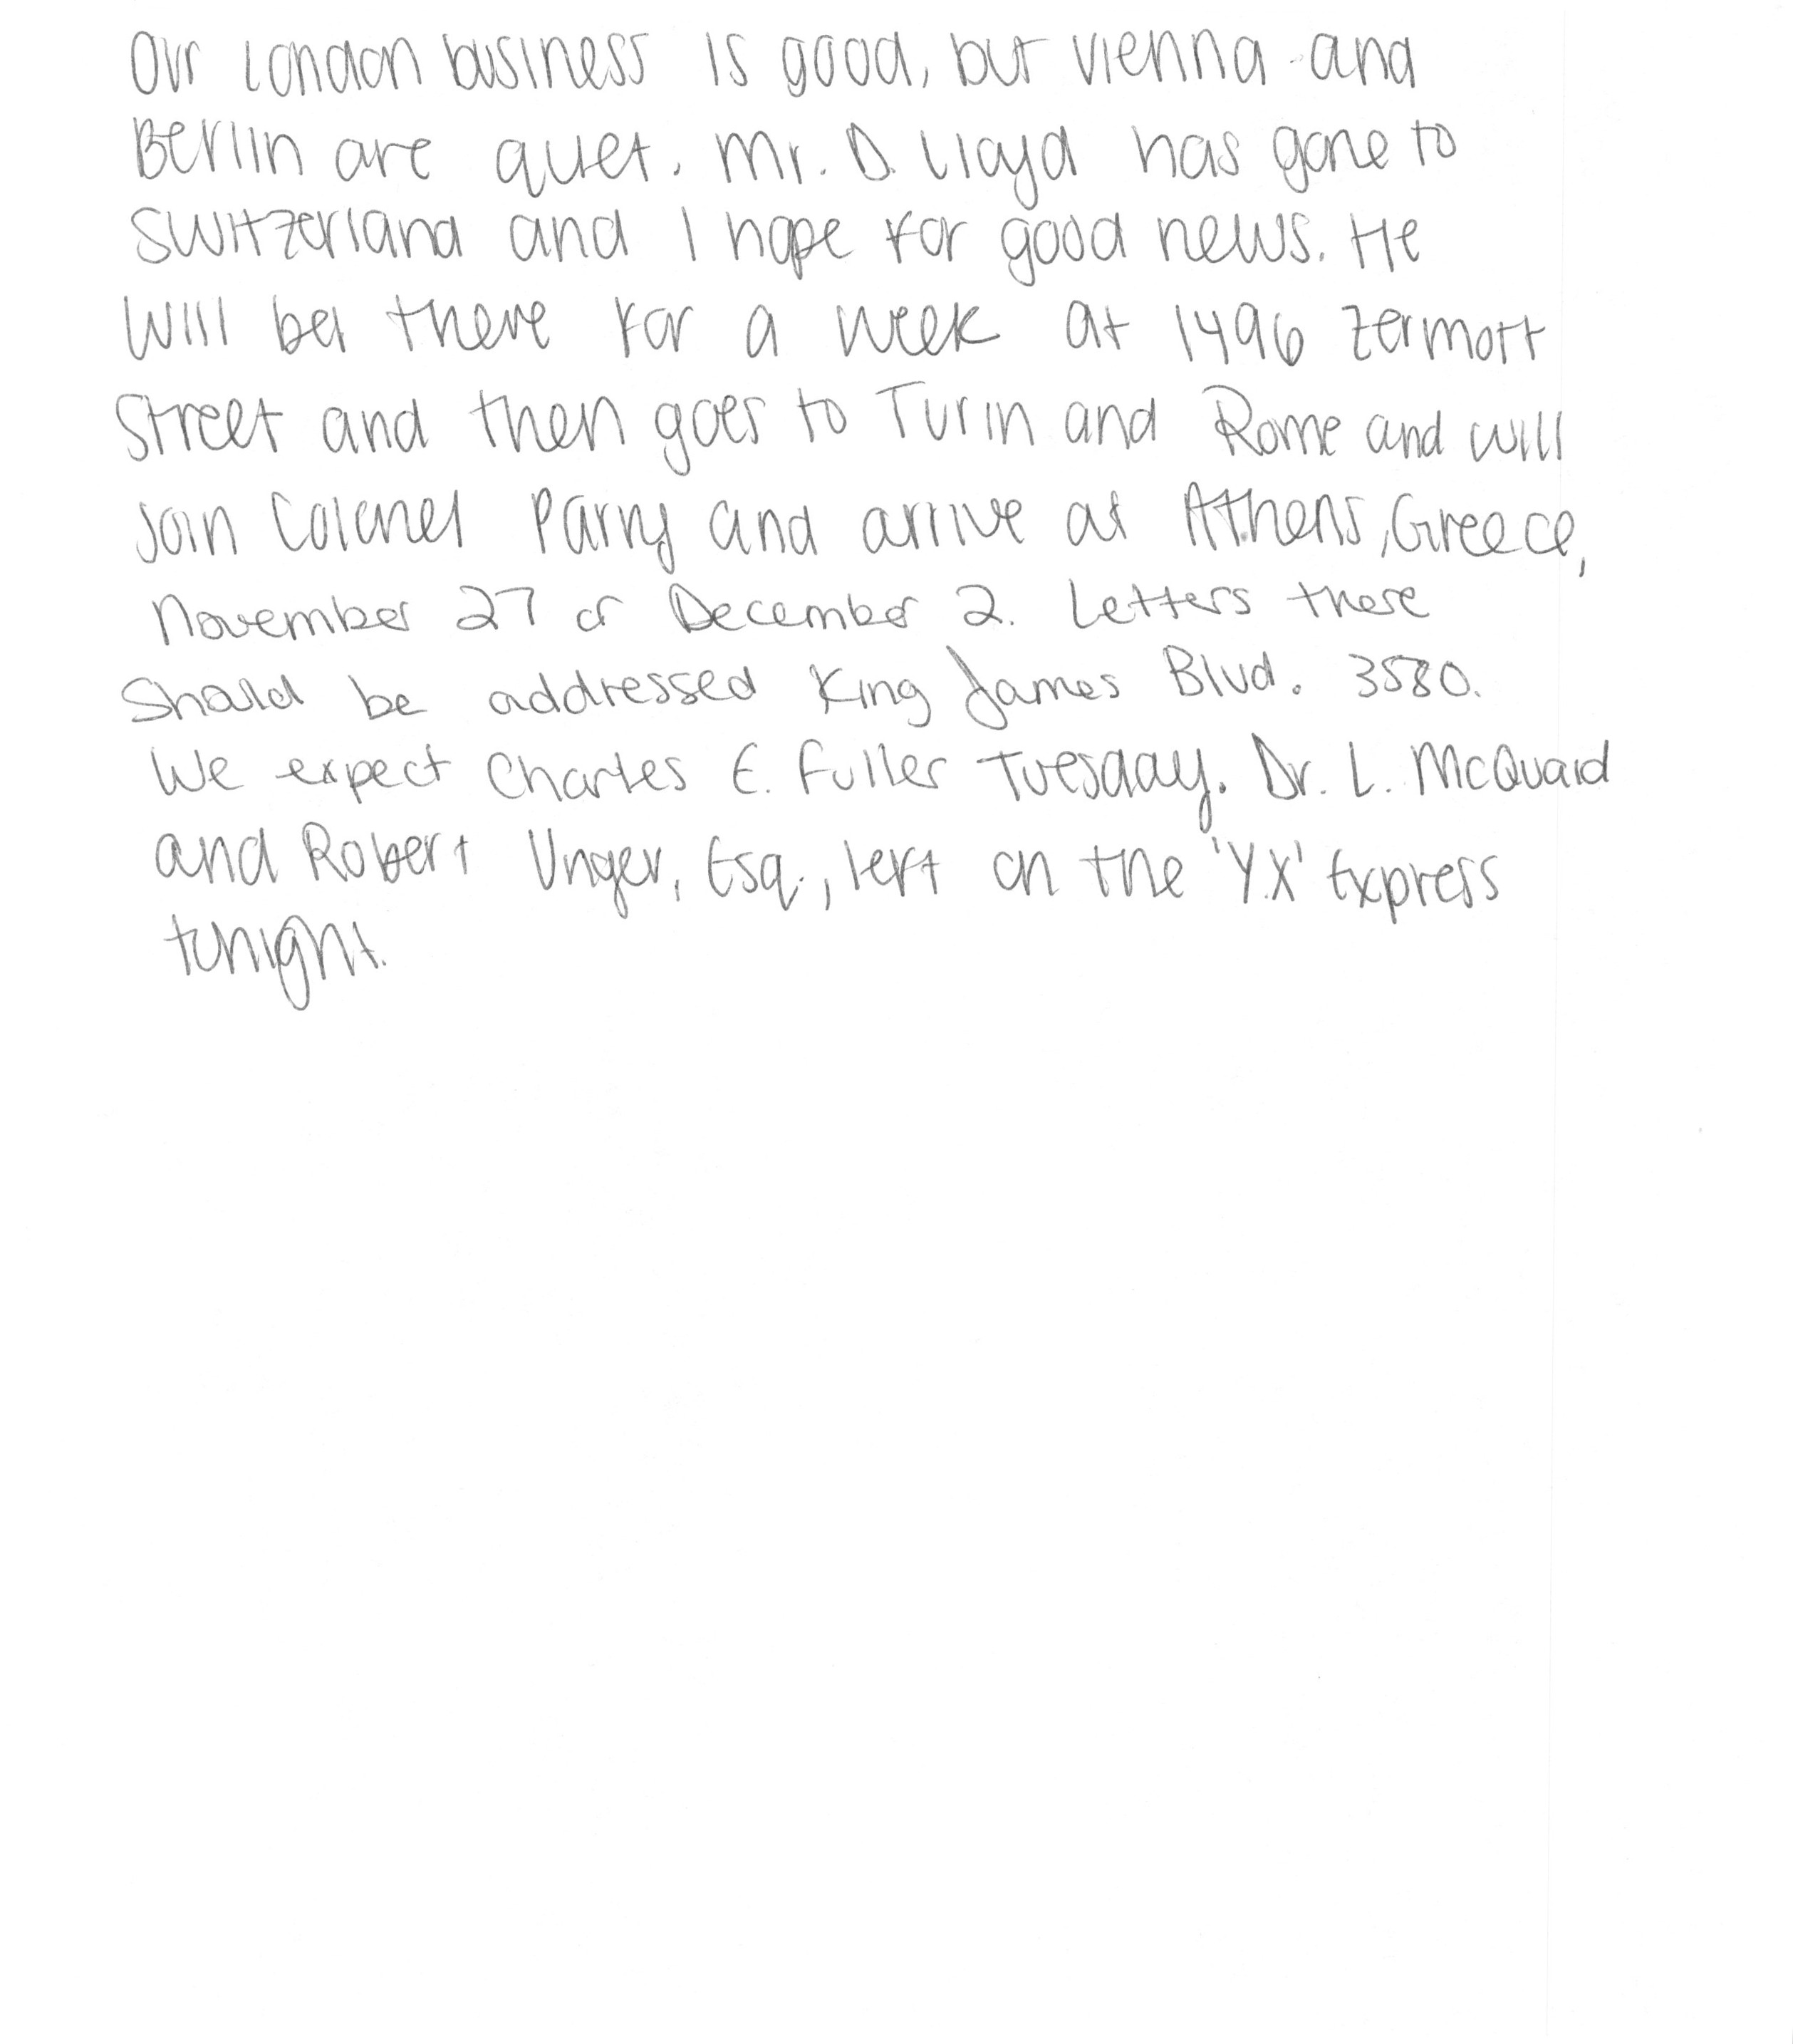 Our London business is good, but Vienna and
Berlin are quiet. Mr. D. Lloyd has gone to
Switzerland and I hope for good news. He
will be there for a week at 1496 Zermott
Street and then goes to Turin and Rome and will
join Colonel Parry and arrive at Athens, Greece,
November 27 or December 2. Letters there
Should be addressed King James Blvd. 3580.
We expect Charles E. Fuller Tuesday. Dr. L. McQuaid
and Robert Unger, Esq., left on the 'Y.X' Express
tonight.